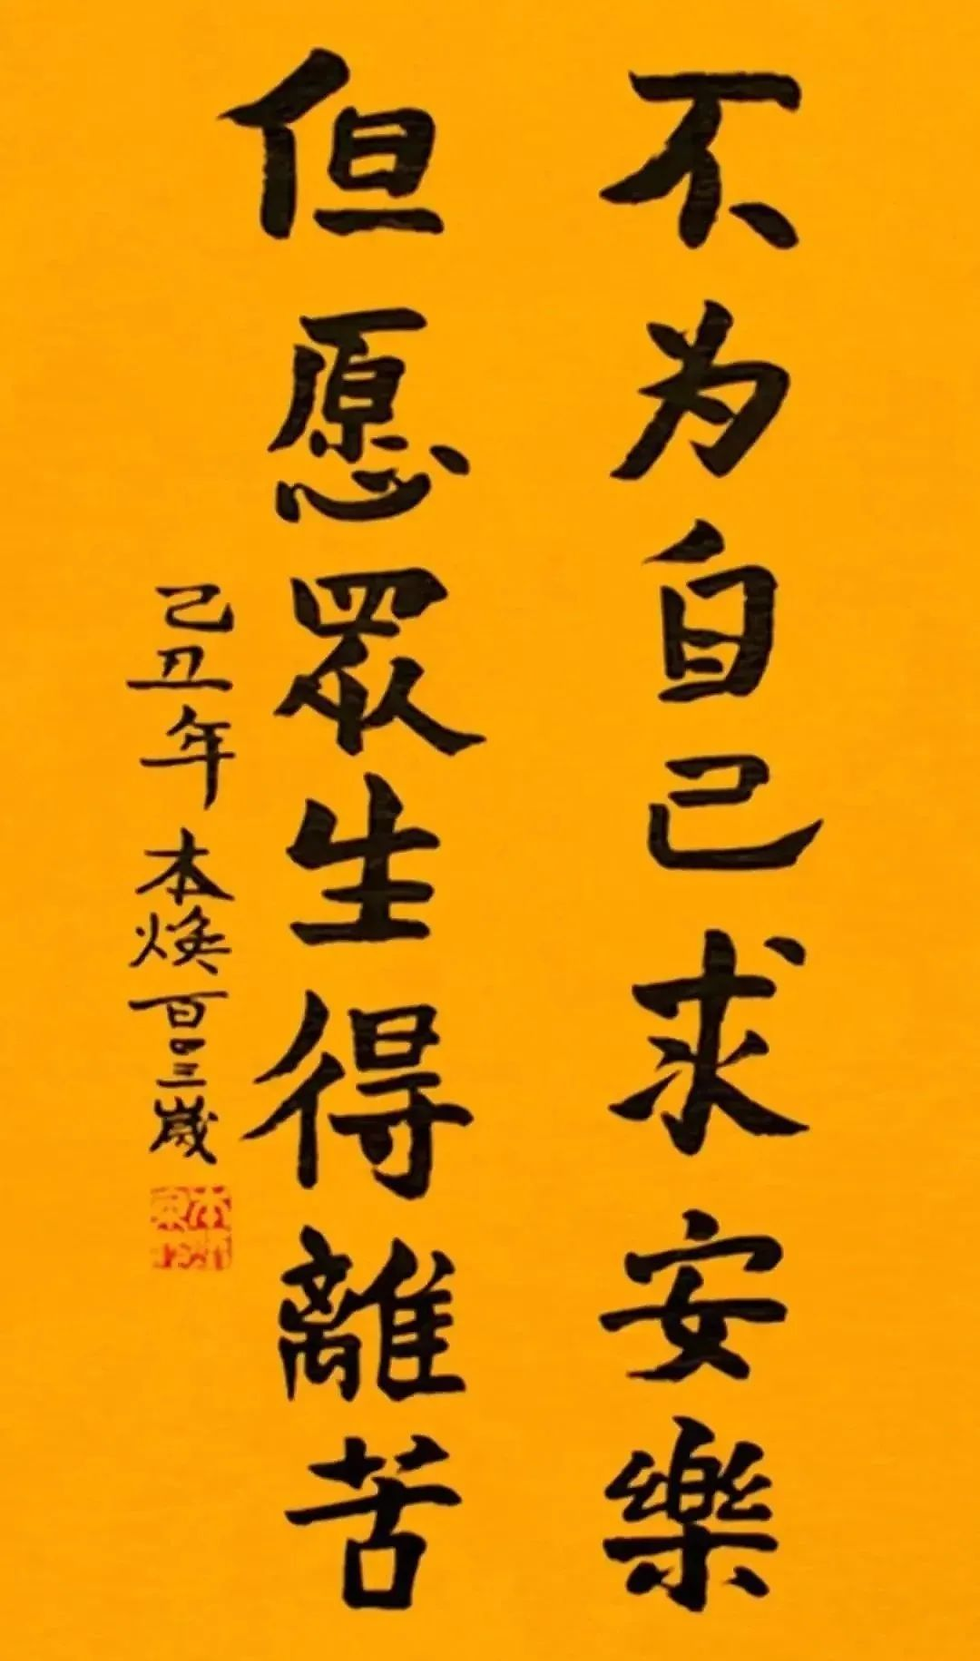 不为自己求安樂
但愿眾生得離苦
己丑年本煥百〇三歲